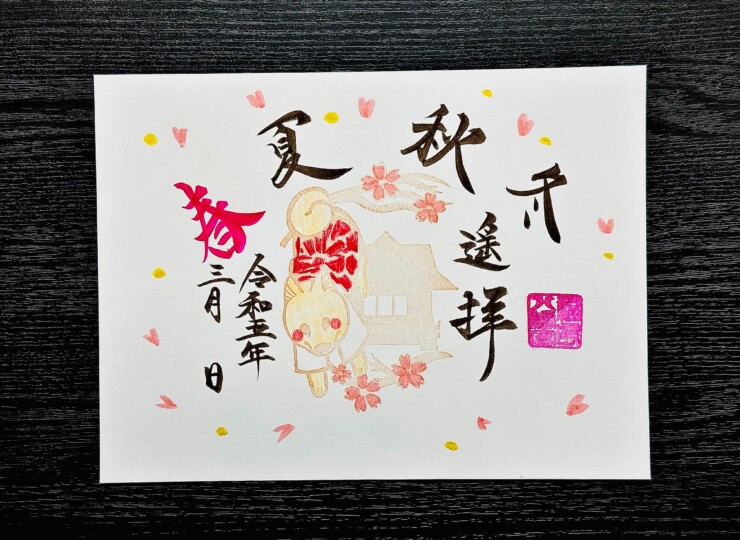 春夏秋
遥拝
令和五年
三月 日